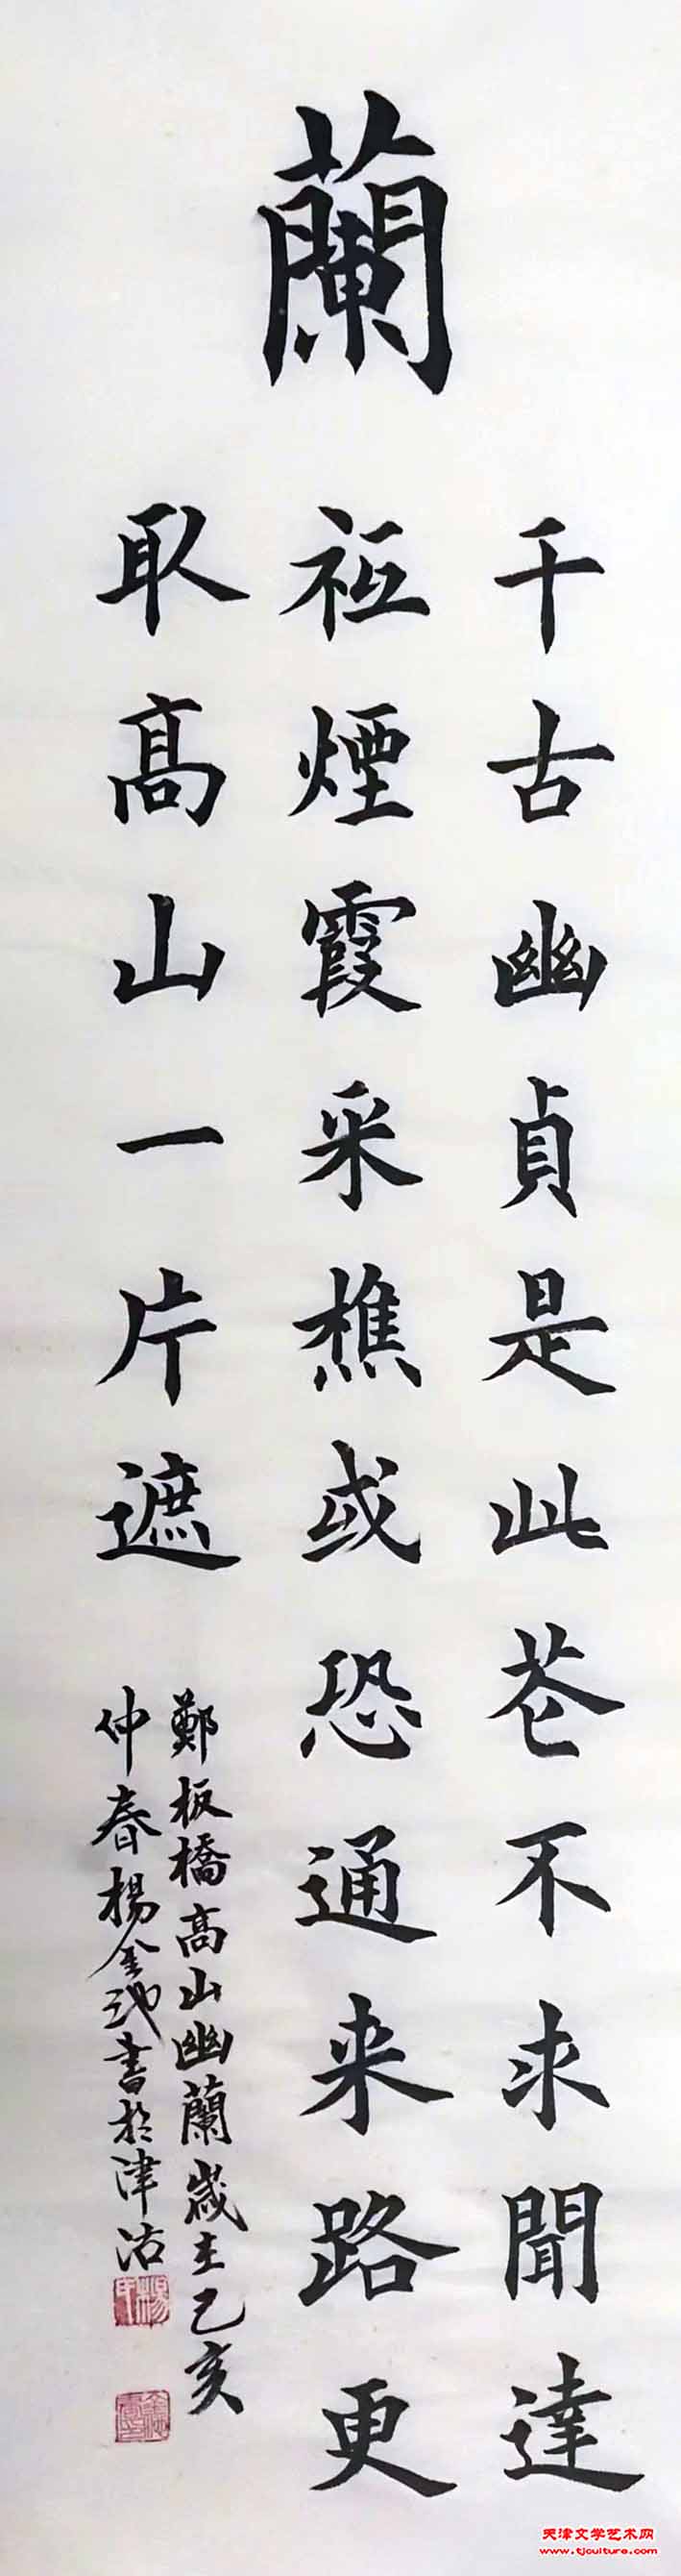 蘭
千古幽貞是此花不求聞達
祗煙霞采樵或恐通来路更
取高山一片遮
鄭板橋高山幽蘭歲在己亥
仲春楊金池書於津沽
天津文学艺术网
www.tjculture.com